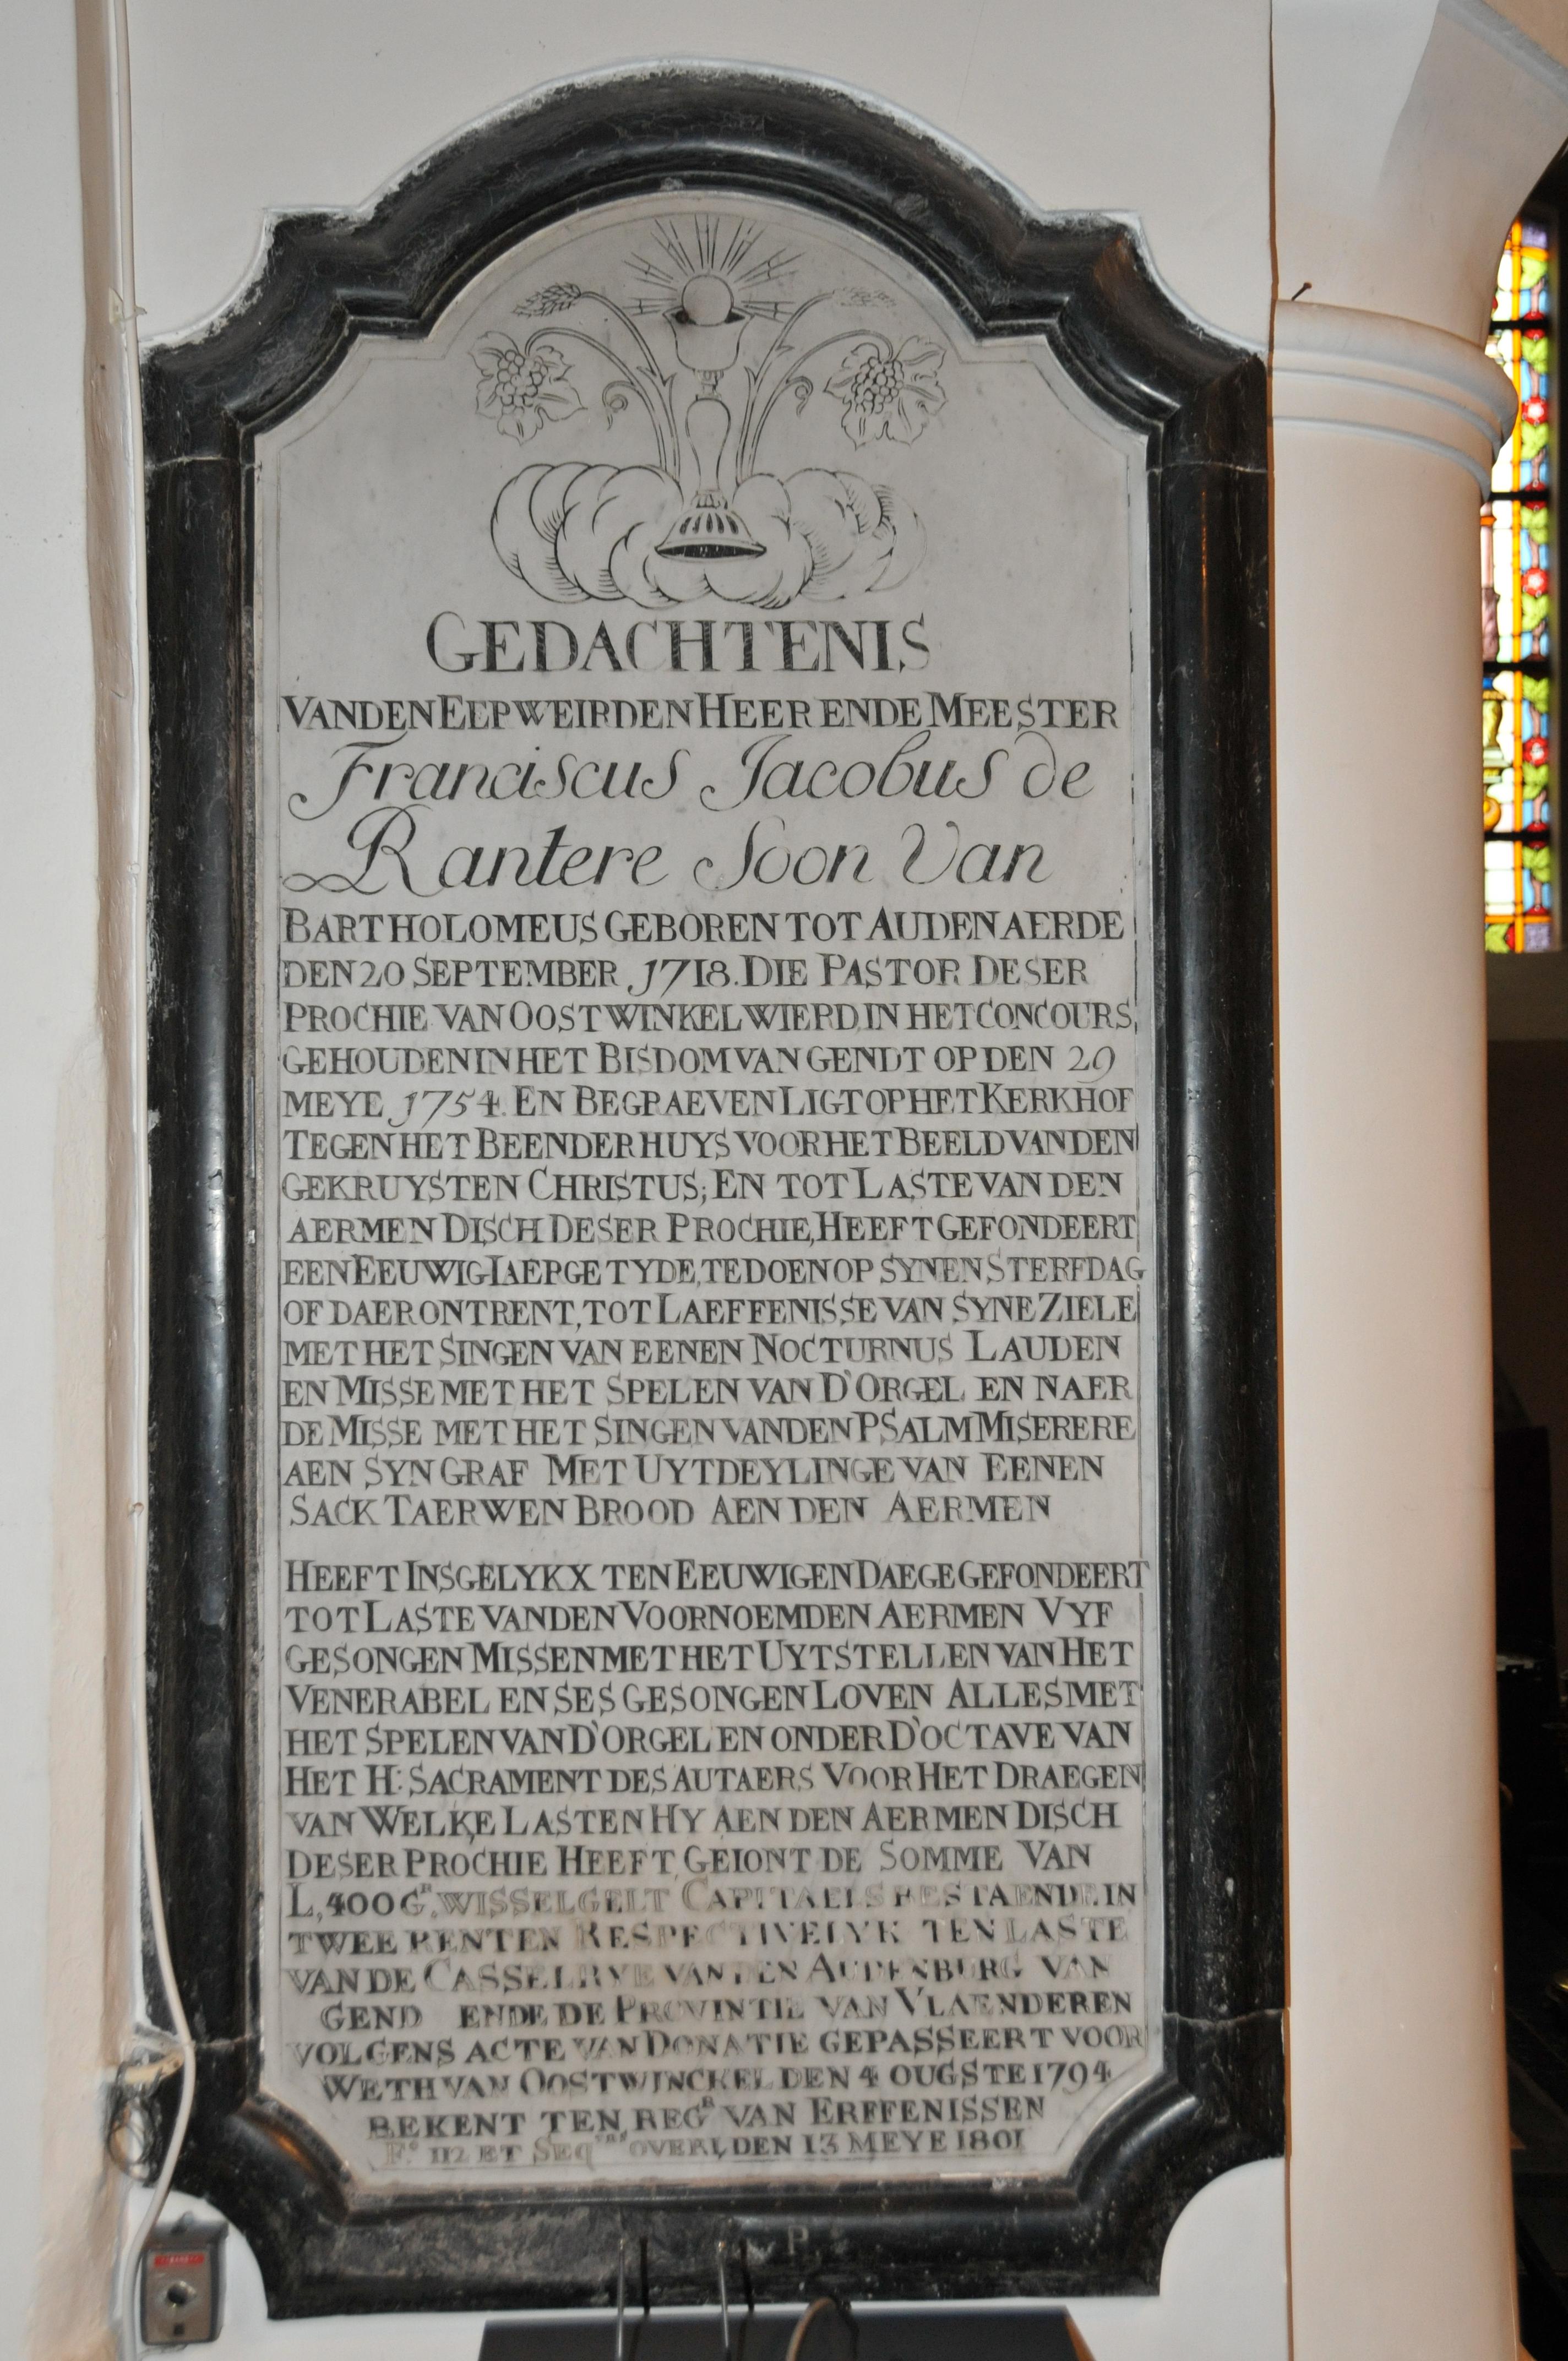 GEDACHTENIS
VANDEN EERWEIRDEN HEER ENDE MEESTER
Franciscus Jacobus de
Rantere Soon Van
BARTHOLOMEUS GEBOREN TOT AUDENAERDE
DEN 20 SEPTEMBER 1718. DIE PASTOR DESER
PROCHIE VAN OOSTWINKEL WIERD, IN HET CONCOURS,
GEHOUDEN IN HET BISDOM VAN GENDT OP DEN 29
MEYE 1754. EN BEGRAEVEN LIGT OP HET KERKHOF
TEGEN HET BEENDERHUYS VOOR HET BEELD VAN DEN
GEKRUYSTEN CHRISTUS; EN TOT LASTE VAN DEN
AERMEN DISCH DESER PROCHIE, HEEFT GEFONDEERT
EEN EEUWIG IAERGETYDE, TE DOEN OP SYNEN STERFDAG
OF DAER ONTRENT, TOT LAEFFENISSE VAN SYNE ZIELE
MET HET SINGEN VAN EENEN NOCTURNUS LAUDEN
EN MISSE MET HET SPELEN VAN D'ORGEL EN NAER
DE MISSE MET HET SINGEN VANDEN PSALM MISERERE
AEN SYN GRAF MET UYTDEYLINGE VAN EENEN
SACK TAERWEN BROOD AEN DEN AERMEN
HEEFT INSGELYKX TEN EEUWIGEN DAEGE GEFONDEERT
TOT LASTE VANDEN VOORNOEMDEN AERMEN VYF
GESONGEN MISSEN MET HET UYTSTELLEN VAN HET
VENERABEL EN SES GESONGEN LOVEN ALLES MET
HET SPELEN VAN D'ORGEL EN ONDER D'OCTAVE VAN
HET H: SACRAMENT DES AUTAERS VOOR HET DRAEGEN
VAN WELKE LASTEN HY AEN DEN AERMEN DISCH
DESER PROCHIE HEEFT GEIONT DE SOMME VAN
L, 400 GR. WISSELGELT CAPITAELS BESTAENDE IN
TWEE RENTEN RESPECTIVELYK TEN LASTE
VAN DE CASSELRYE VAN DEN AUDENBURG VAN
GEND ENDE DE PROVINTIE VAN VLAENDEREN
VOLGENS ACTE VAN DONATIE GEPASSEERT VOOR
WETH VAN OOSTWINCKEL DEN 4 OUGSTE 1794
BEKENT TEN REGR VAN ERFFENISSEN
Fo. 112 ET SEQ OVERL, DEN 13 MEYE 1801